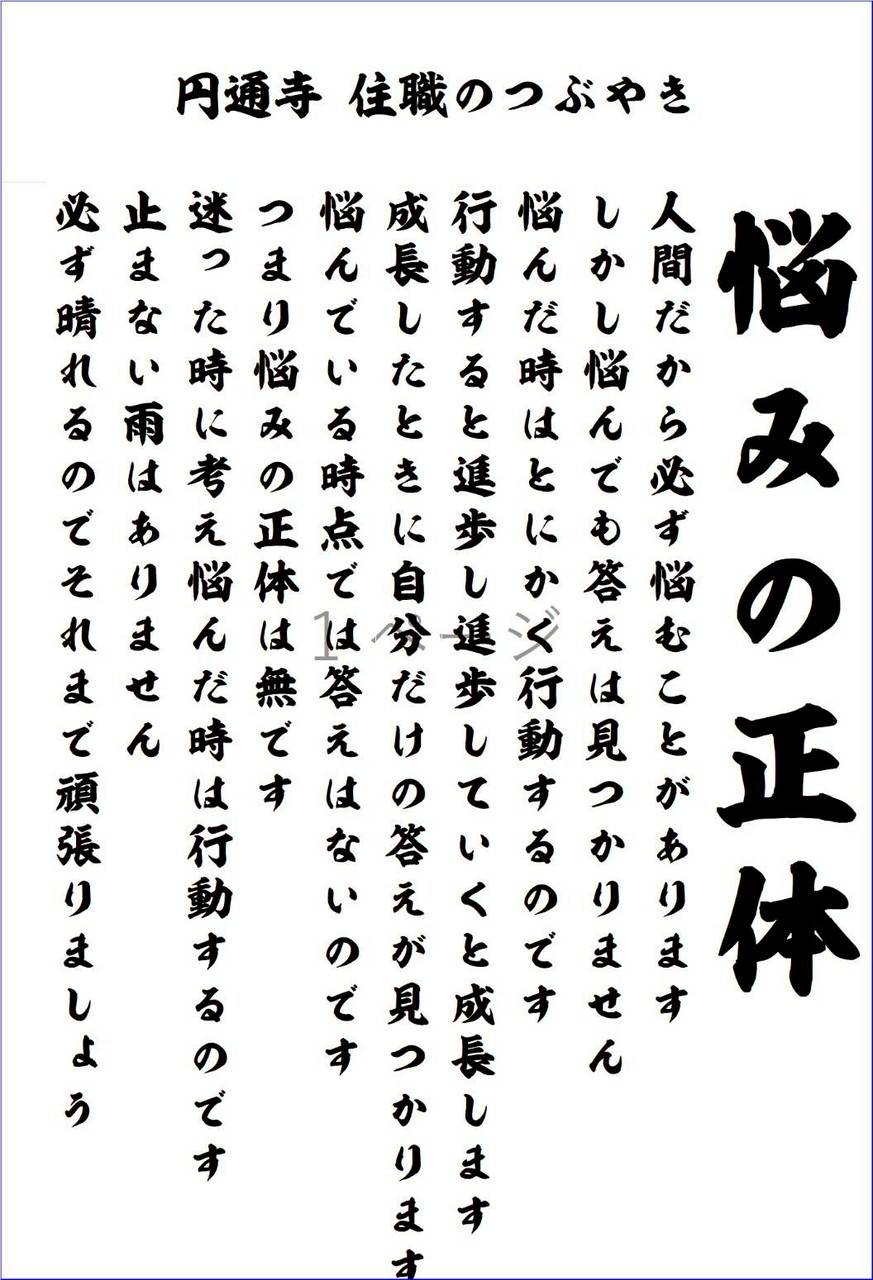 円通寺 住職のつぶやき
悩みの正体
人間だから必ず悩むことがあります
しかし悩んでも答えは見つかりません
悩んだ時はとにかく行動するのです
行動すると進歩し進歩していくと成長します
成長したときに自分だけの答えが見つかります
悩んでいる時点では答えはないのです
つまり悩みの正体は無です
迷った時に考え悩んだ時は行動するのです
止まない雨はありません
必ず晴れるのでそれまで頑張りましょう
1 ページ